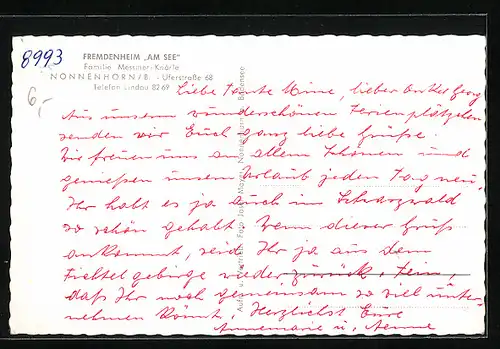 8993
6,-
FREMDENHEIM „AM SEE"
Familie Messmer-Knörle
NONNENHORN/B. - Uferstraße 68
Telefon Lindau 8269
Liebe Tante Mine, lieber Onkel Georg
Aus unserm wunderschönen Ferienplätzchen
senden wir Euch ganz liebe Grüße.
Wir freuen uns an allem Schönen und
genießen unsern Urlaub jeden Tag neu,
Ihr habt es ja auch im Schwarzwald
so schön gehabt. Wenn dieser Gruß
ankommt, seid Ihr ja aus dem
Fichtelgebirge wieder zurück. Fein,
daß Ihr noch gemeinsam so viel unter-
nehmen könnt. Herzlichst Eure
Annemarie u.
Bodensee